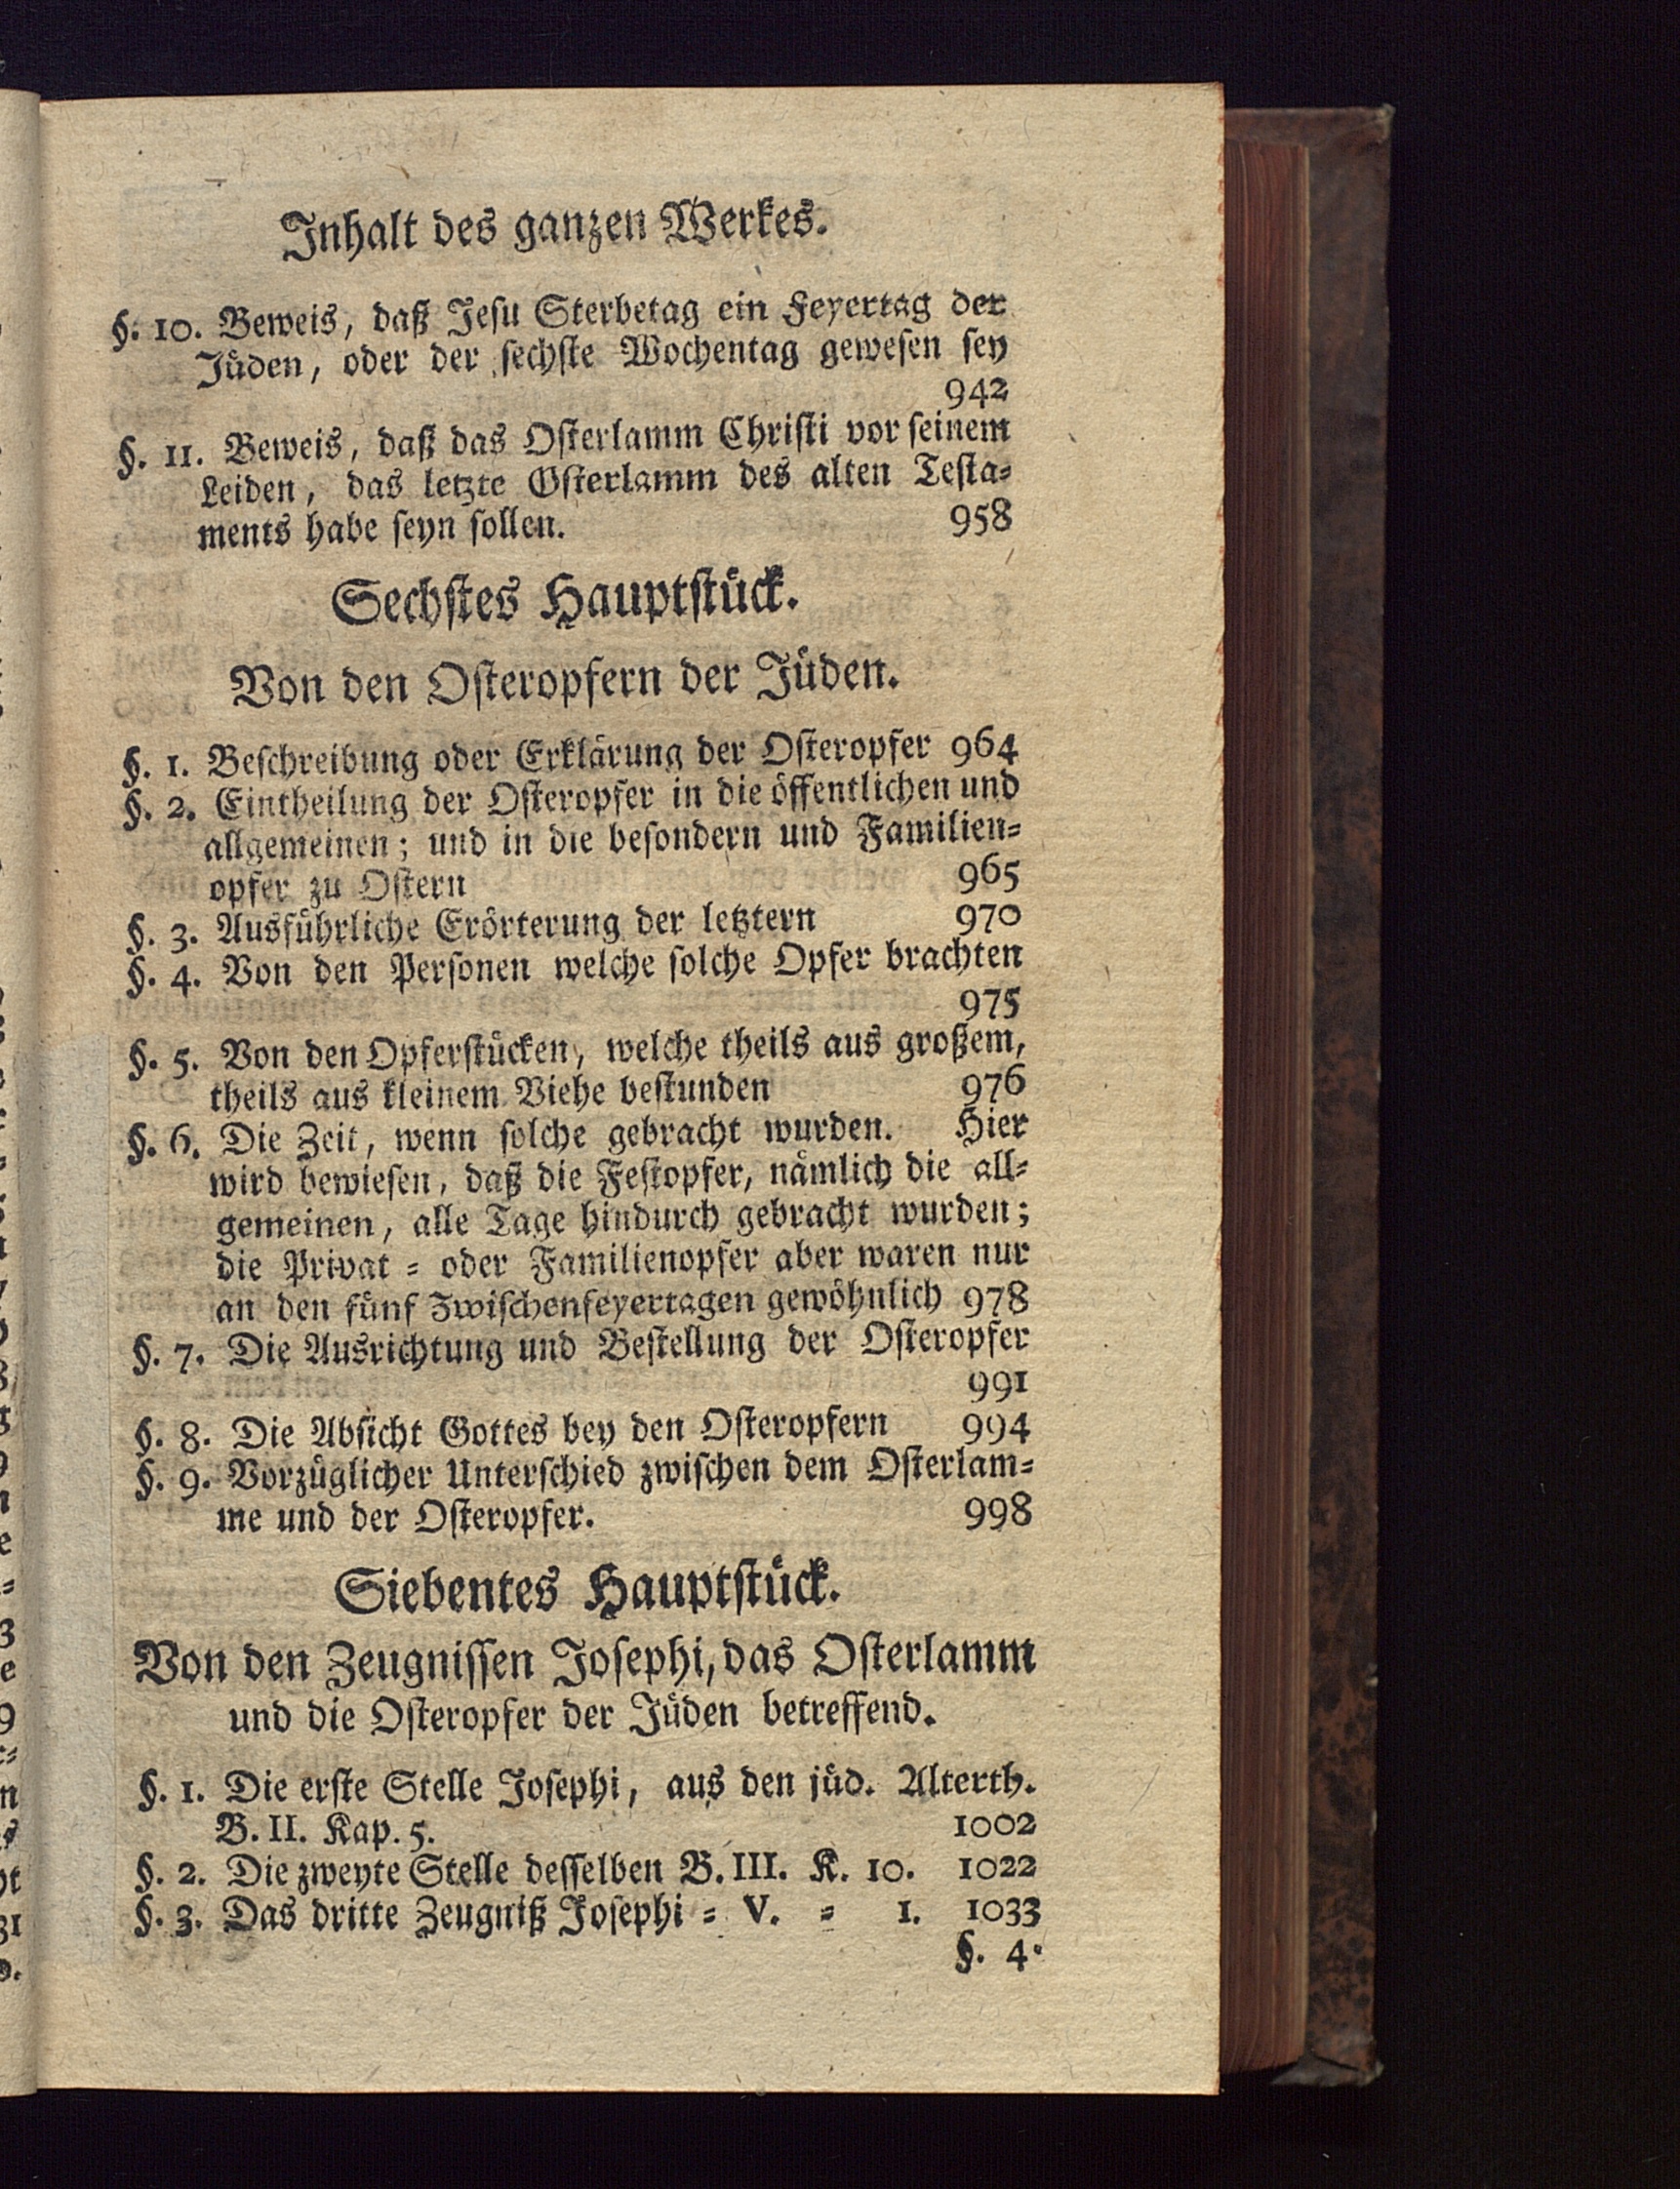 Inhalt des ganzen Werkes.
§. 10. Beweis, daß Jesu Sterbetag ein Feyertag der
Jüden, oder der sechste Wochentag gewesen sey
942
§. 11. Beweis, daß das Osterlamm Christi vor seinem
Leiden, das letzte Osterlamm des alten Testa=
ments habe seyn sollen. 958
Sechstes Hauptstück.
Von den Osteropfern der Jüden.
§. 1. Beschreibung oder Erklärung der Osteropfer 964
§. 2. Eintheilung der Osteropfer in die öffentlichen und
allgemeinen; und in die besondern und Familien=
opfer zu Ostern 965
§. 3. Ausführliche Erörterung der letztern 970
§. 4. Von den Personen welche solche Opfer brachten
975
§. 5. Von den Opferstücken, welche theils aus großem,
theils aus kleinem Viehe bestunden 976
§. 6. Die Zeit, wenn solche gebracht wurden. Hier
wird bewiesen, daß die Festopfer, nämlich die all=
gemeinen, alle Tage hindurch gebracht wurden;
die Privat = oder Familienopfer aber waren nur
an den fünf Zwischenfeyertagen gewöhnlich 978
§. 7. Die Ausrichtung und Bestellung der Osteropfer
991
§. 8. Die Absicht Gottes bey den Osteropfern 994
§. 9. Vorzüglicher Unterschied zwischen dem Osterlam=
me und der Osteropfer. 998
Siebentes Hauptstück.
Von den Zeugnissen Josephi, das Osterlamm
und die Osteropfer der Jüden betreffend.
§. 1. Die erste Stelle Josephi, aus den jüd. Alterth.
B. II. Kap. 5. 1002
§. 2. Die zweyte Stelle desselben B. III. K. 10. 1022
§. 3. Das dritte Zeugniß Josephi = V. = 1. 1033
§. 4.